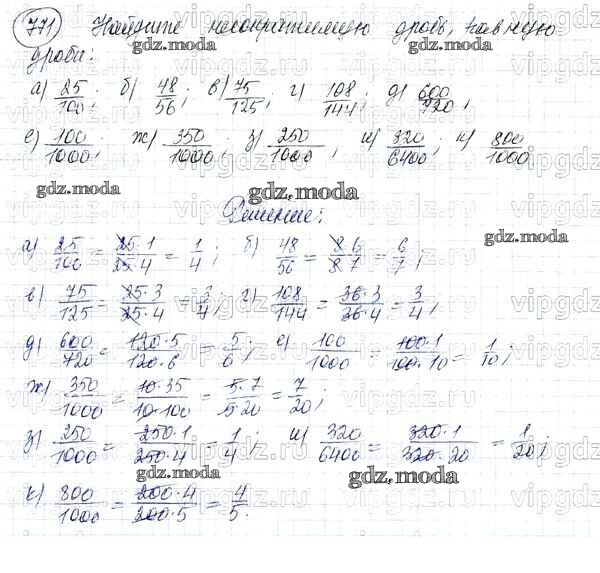 771 Найдите несократимую дробь, равную
дроби:
а) 25/100; б) 48/56; в) 75/125; г) 108/144; д) 600/720;
е) 100/1000; ж) 350/1000; з) 250/1000; и) 320/6400; к) 800/1000
Решение:
а) 25/100 = 25·1/25·4 = 1/4; б) 48/56 = 8·6/8·7 = 6/7;
в) 75/125 = 25·3/25·4 = 3/4; г) 108/144 = 36·3/36·4 = 3/4;
д) 600/720 = 120·5/120·6 = 5/6; е) 100/1000 = 100·1/100·10 = 1/10;
ж) 350/1000 = 10·35/10·100 = 5·7/5·20 = 7/20;
з) 250/1000 = 250·1/250·4 = 1/4; и) 320/6400 = 320·1/320·20 = 1/20;
к) 800/1000 = 200·4/200·5 = 4/5.
gdz.moda
vipgdz.ru